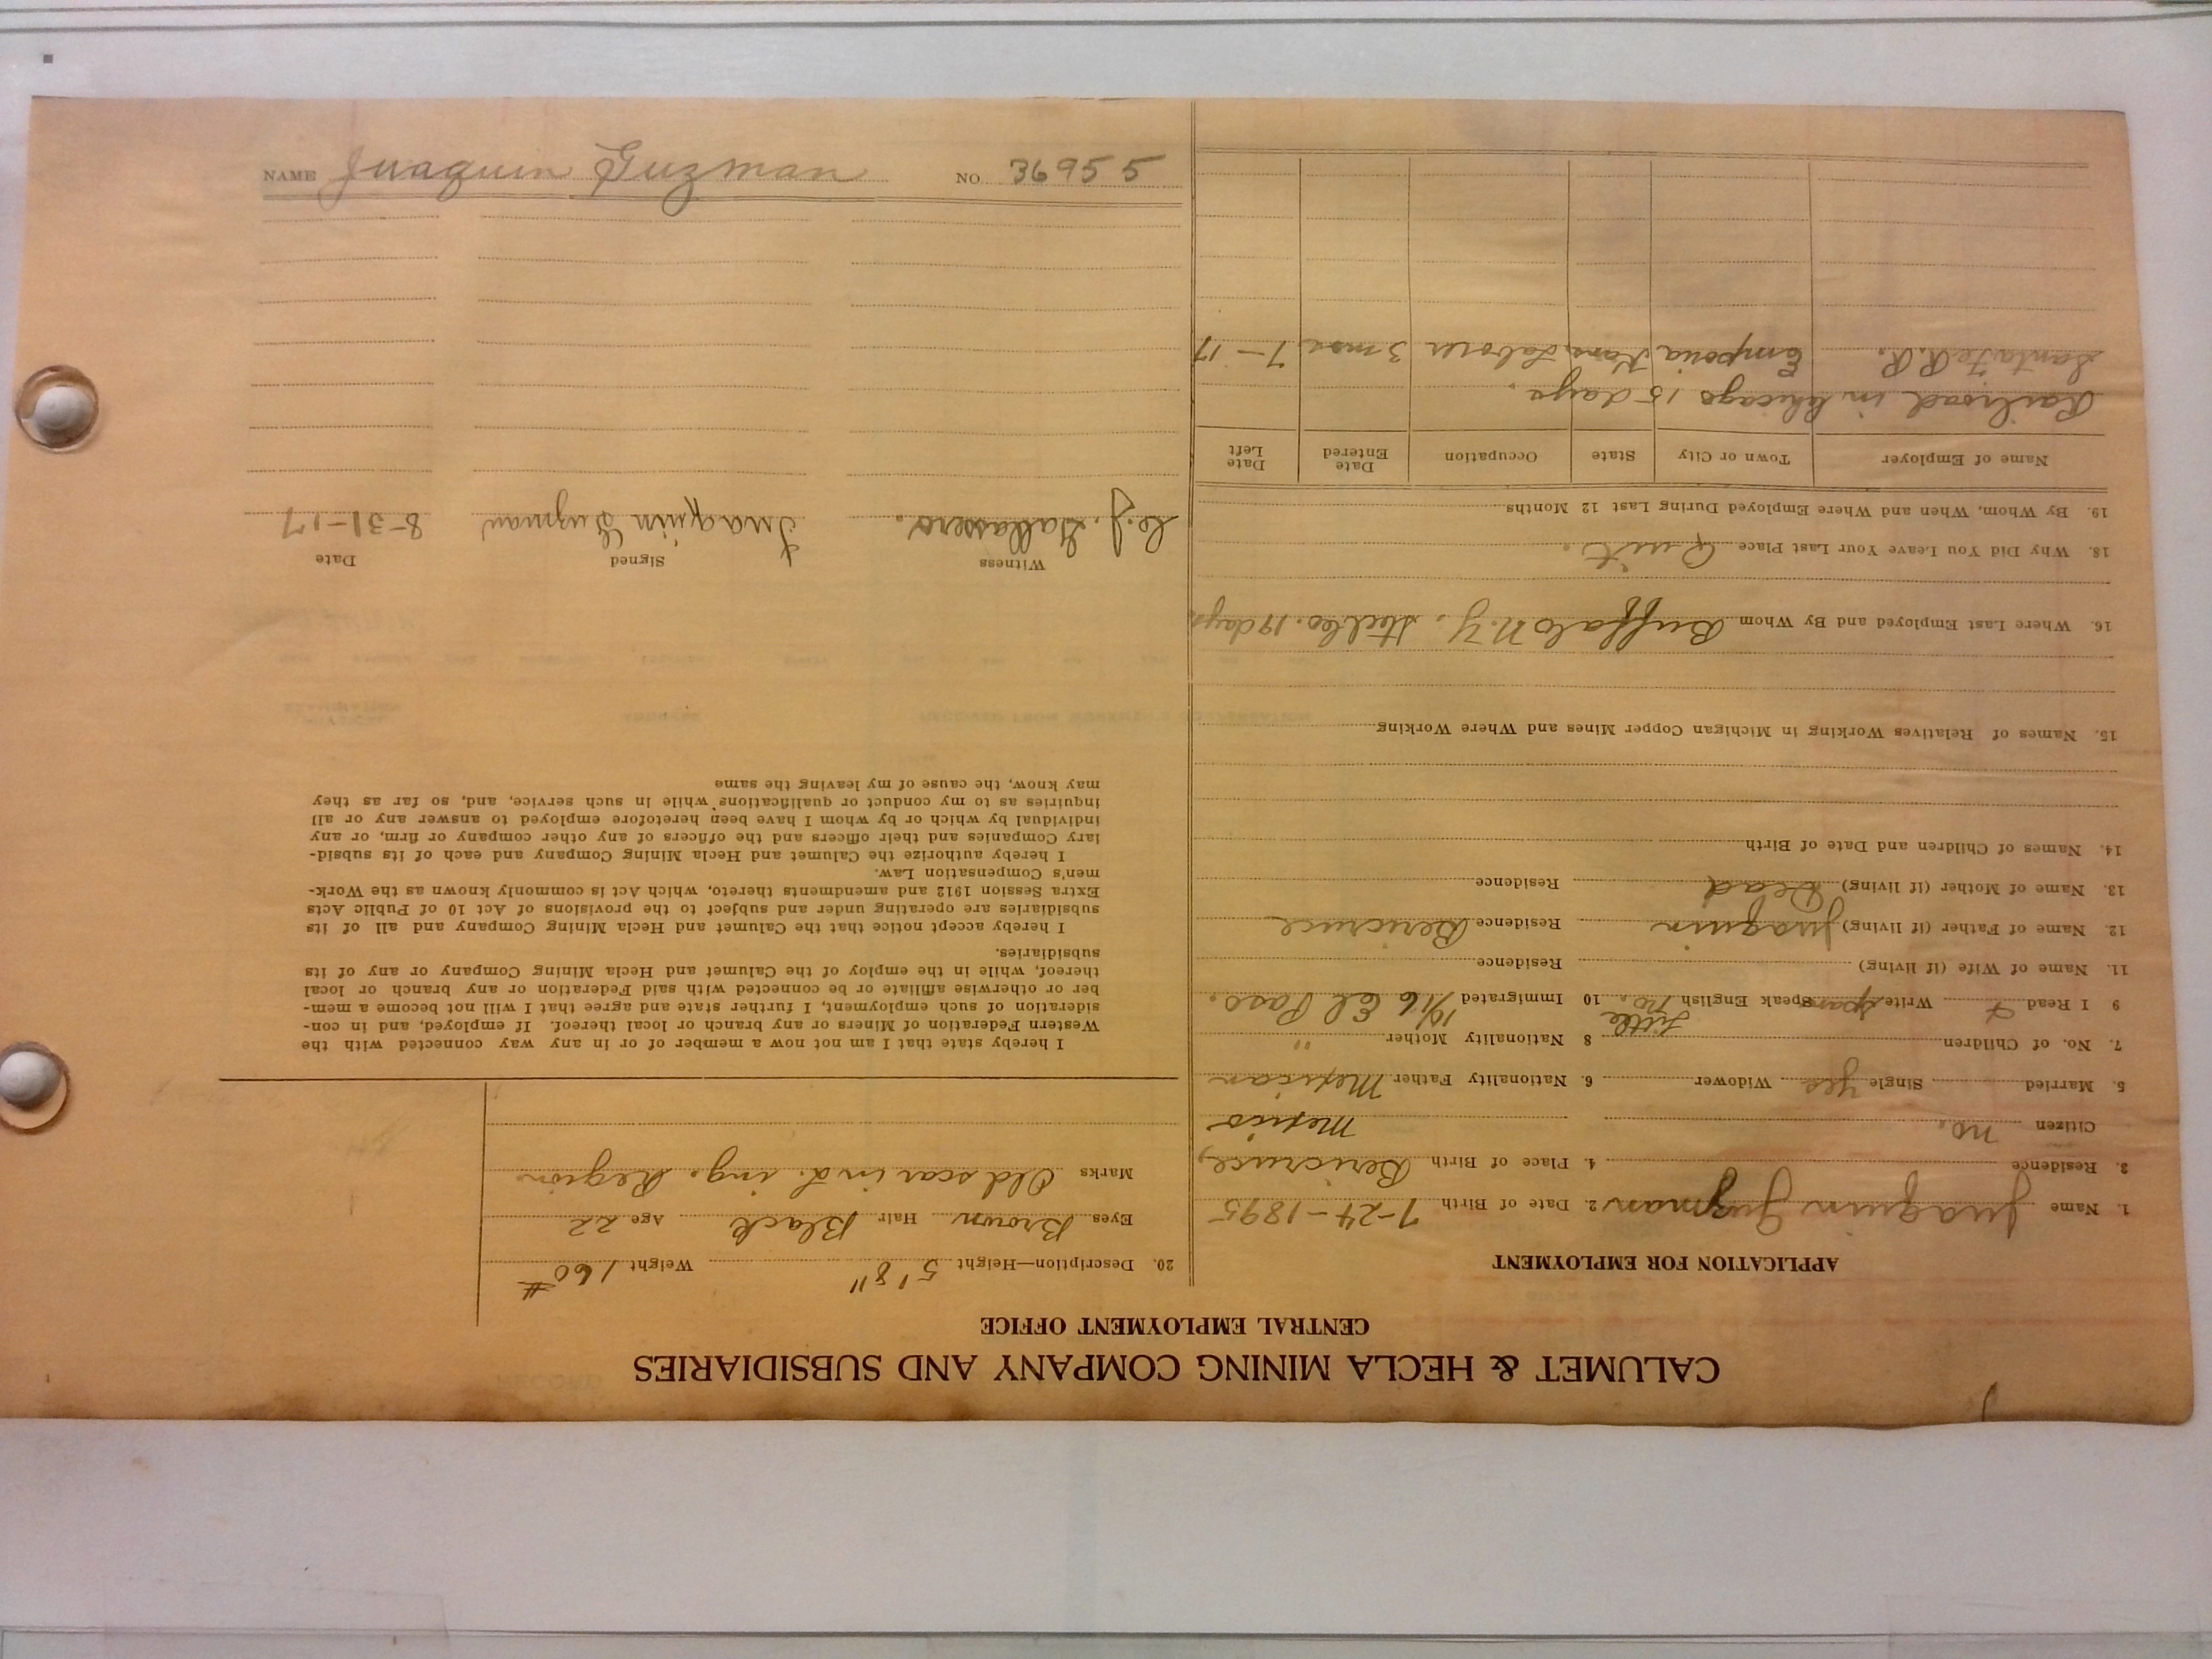 CALUMET & HECLA MINING COMPANY AND SUBSIDIARIES
CENTRAL EMPLOYMENT OFFICE
APPLICATION FOR EMPLOYMENT
1. Name Juaquin Guzman 2. Date of Birth 7-24-1895
3. Residence 4. Place of Birth Bericruce,
Citizen no. Mexico
5. Married Single Yes Widower 6. Nationality Father Mexican
7. No. of Children 8 Nationality Mother "
9 I Read Write Span Speak English no. Little 10 Immigrated 10/16 El Paso.
11. Name of Wife (if living) Residence
12. Name of Father (if living) Juaquin Residence Bericruce
13. Name of Mother (if living) Dead Residence
14. Names of Children and Date of Birth
15. Names of Relatives Working in Michigan Copper Mines and Where Working
16. Where Last Employed and By Whom Buffalo N.Y. Steel Co. 19 days.
18. Why Did You Leave Your Last Place Quit.
19. By Whom, When and Where Employed During Last 12 Months
Name of Employer Town or City State Occupation Date Entered Date Left
Railroad in Chicago 15 days.
Santa Fe R.R. Emporia Kans. Laborer 3 mos. 7-17
20. Description—Height 5' 8" Weight 160 #
Eyes Brown Hair Black Age 22
Marks Old scar in L. ing. Region
I hereby state that I am not now a member of or in any way connected with the
Western Federation of Miners or any branch or local thereof. If employed, and in con-
sideration of such employment, I further state and agree that I will not become a mem-
ber or otherwise affiliate or be connected with said Federation or any branch or local
thereof, while in the employ of the Calumet and Hecla Mining Company or any of its
subsidiaries.
I hereby accept notice that the Calumet and Hecla Mining Company and all of its
subsidiaries are operating under and subject to the provisions of Act 10 of Public Acts
Extra Session 1912 and amendments thereto, which Act is commonly known as the Work-
men's Compensation Law.
I hereby authorize the Calumet and Hecla Mining Company and each of its subsid-
iary Companies and their officers and the officers of any other company or firm, or any
individual by which or by whom I have been heretofore employed to answer any or all
inquiries as to my conduct or qualifications while in such service, and, so far as they
may know, the cause of my leaving the same
Witness Signed Date
C. J. Juaquin Guzman 8-31-17
NAME Juaquin Guzman NO. 36955